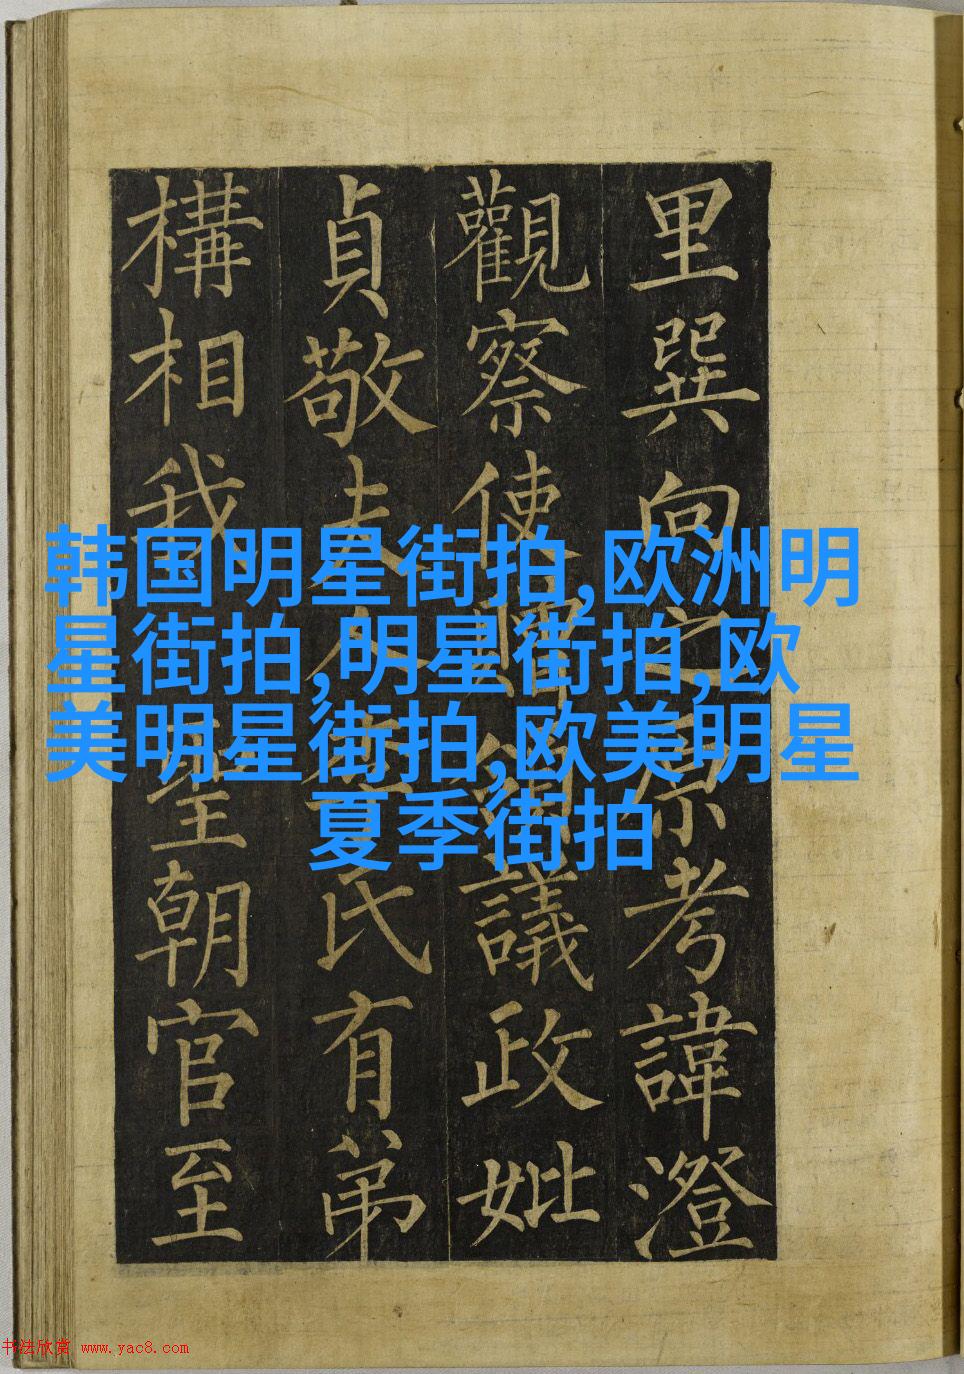 里巽向之原考諱澄
觀察使贈議政妣
貞敬夫人氏有弟
構相我聖朝官至
韩国明星街拍,欧洲明
星街拍,明星街拍,欧
美明星街拍,欧美明星
夏季街拍
书法欣赏 www.yac8.com